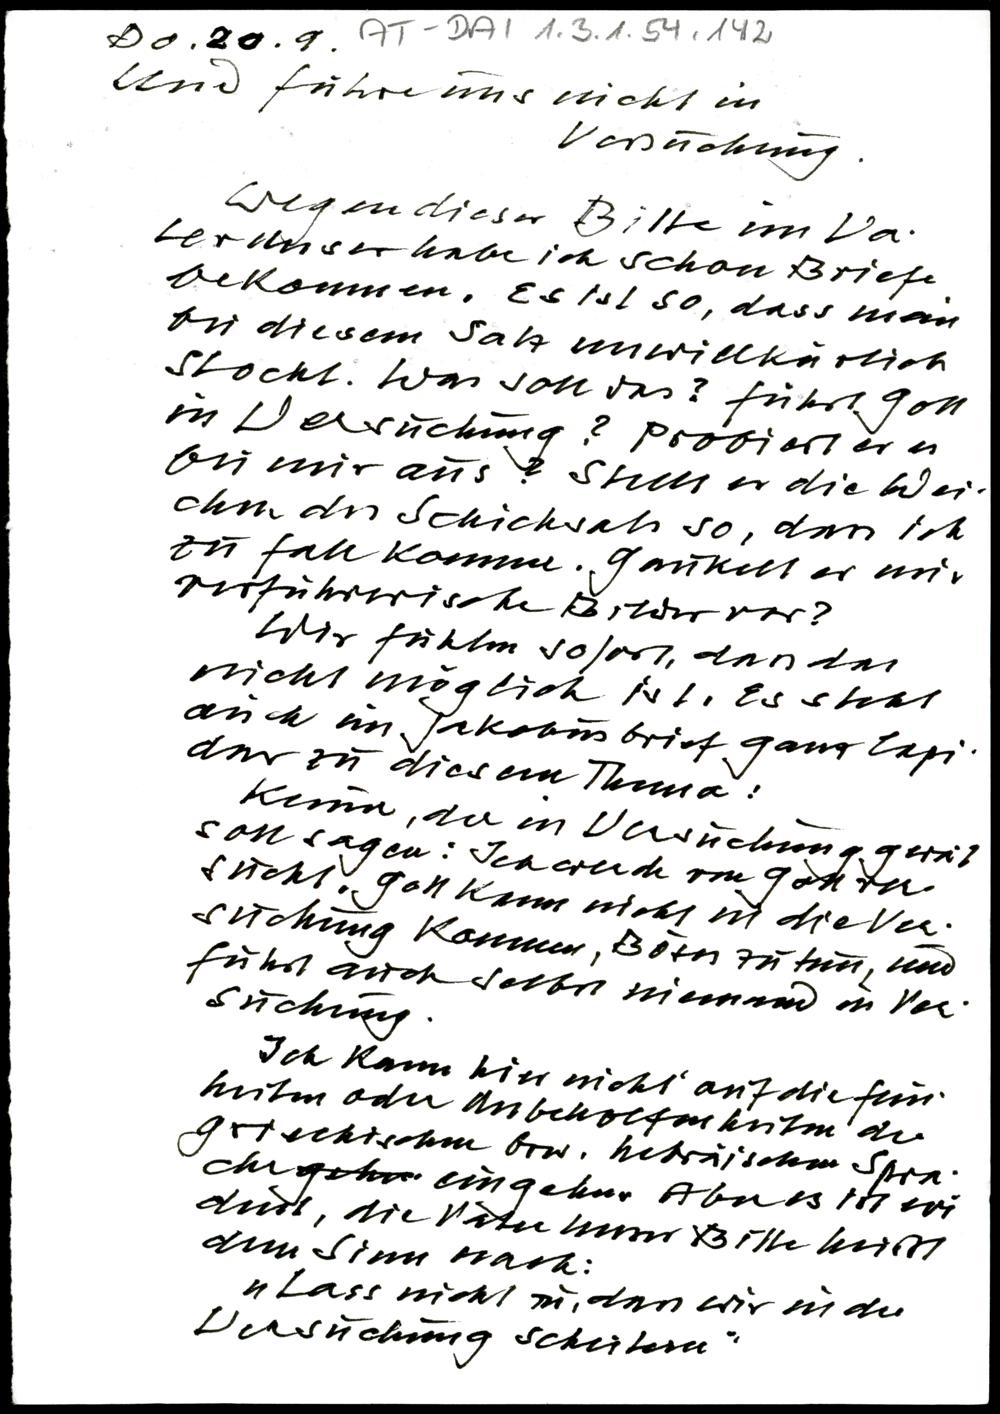 Do. 20. 9. AT-DAI 1.3.1.54.142
Und führe uns nicht in
Versuchung.
Wegen dieser Bitte im Va-
terunser habe ich schon Briefe
bekommen. Es ist so, dass man
bei diesem Satz unwillkürlich
stockt. Was soll das? Führt Gott
in Versuchung? Probiert er es
bei mir aus? Stellt er die Wei-
chen des Schicksals so, dass ich
zu Fall komme. Gaukelt er mir
verführerische Bilder vor?
Wir fühlen sofort, dass das
nicht möglich ist. Es steht
auch im Jakobusbrief ganz lapi-
dar zu diesem Thema:
Keiner, der in Versuchung gerät
soll sagen: Ich werde von Gott ver-
sucht. Gott kann nicht in die Ver-
suchung kommen, Böses zu tun, und
führt auch selbst niemand in Ver-
suchung.
Ich kann hier nicht auf die Fein-
heiten oder Unbeholfenheiten der
griechischen bzw. hebräischen Spra-
che gehen eingehen. Aber es ist evi
dent, die Vater unser Bitte heisst
dem Sinn nach:
"Lass nicht zu, dass wir in der
Versuchung scheitern"